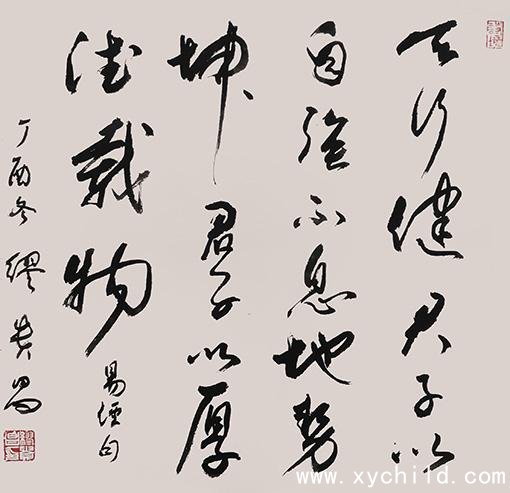 天行健君子以
自強不息地勢
坤君子以厚
德載物
易經句
丁酉冬 繆
www.xychild.com